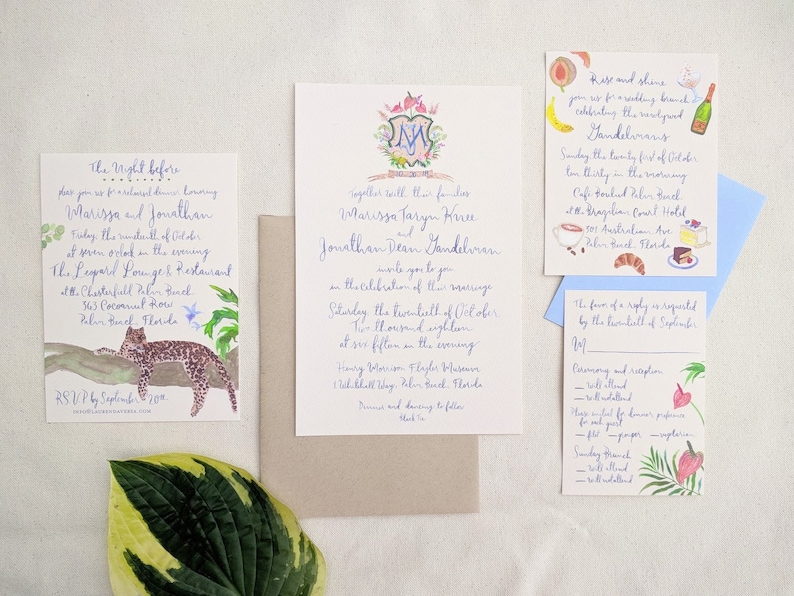 The Night before
please join us for a rehearsal dinner honoring
Marissa and Jonathan
Friday, the nineteenth of October
at seven o'clock in the evening
The Leopard Lounge & Restaurant
at the Chesterfield Palm Beach
363 Cocoanut Row
Palm Beach, Florida
RSVP by September 20th
INFO@LAURENDAVERSA.COM
MJ
Together with their families
Marissa Taryn Knee
and
Jonathan Dean Gandelman
invite you to
in the celebration of their marriage
Saturday, the twentieth of October
Two thousand eighteen
at six fifteen in the evening
Henry Morrison Flagler Museum
1 Whitehall Way, Palm Beach, Florida
Dinner and dancing to follow
Black Tie
Rise and shine
join us for a wedding brunch
celebrating the newlywed
Gandelmans
Sunday, the twenty first of October
ten thirty in the morning
Café Boulud Palm Beach
at the Brazilian Court Hotel
301 Australian Ave
Palm Beach, Florida
The favor of a reply is requested
by the twentieth of September
M
Ceremony and reception
will attend
will not attend
Please initial for dinner preference
for each guest
filet grouper vegetarian
Sunday Brunch
will attend
will not attend